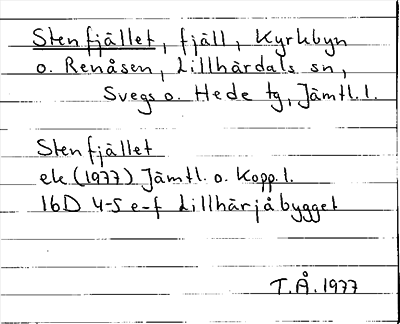 Stenfjället, fjäll, Kyrkbyn
o. Renåsen, Lillhärdals sn,
Svegs o. Hede tg, Jämtl.l.
Stenfjället
ek (1977) Jämtl. o. Kopp.l.
16D 4-5 e-f Lillhärjåbygget
T.Å.1977